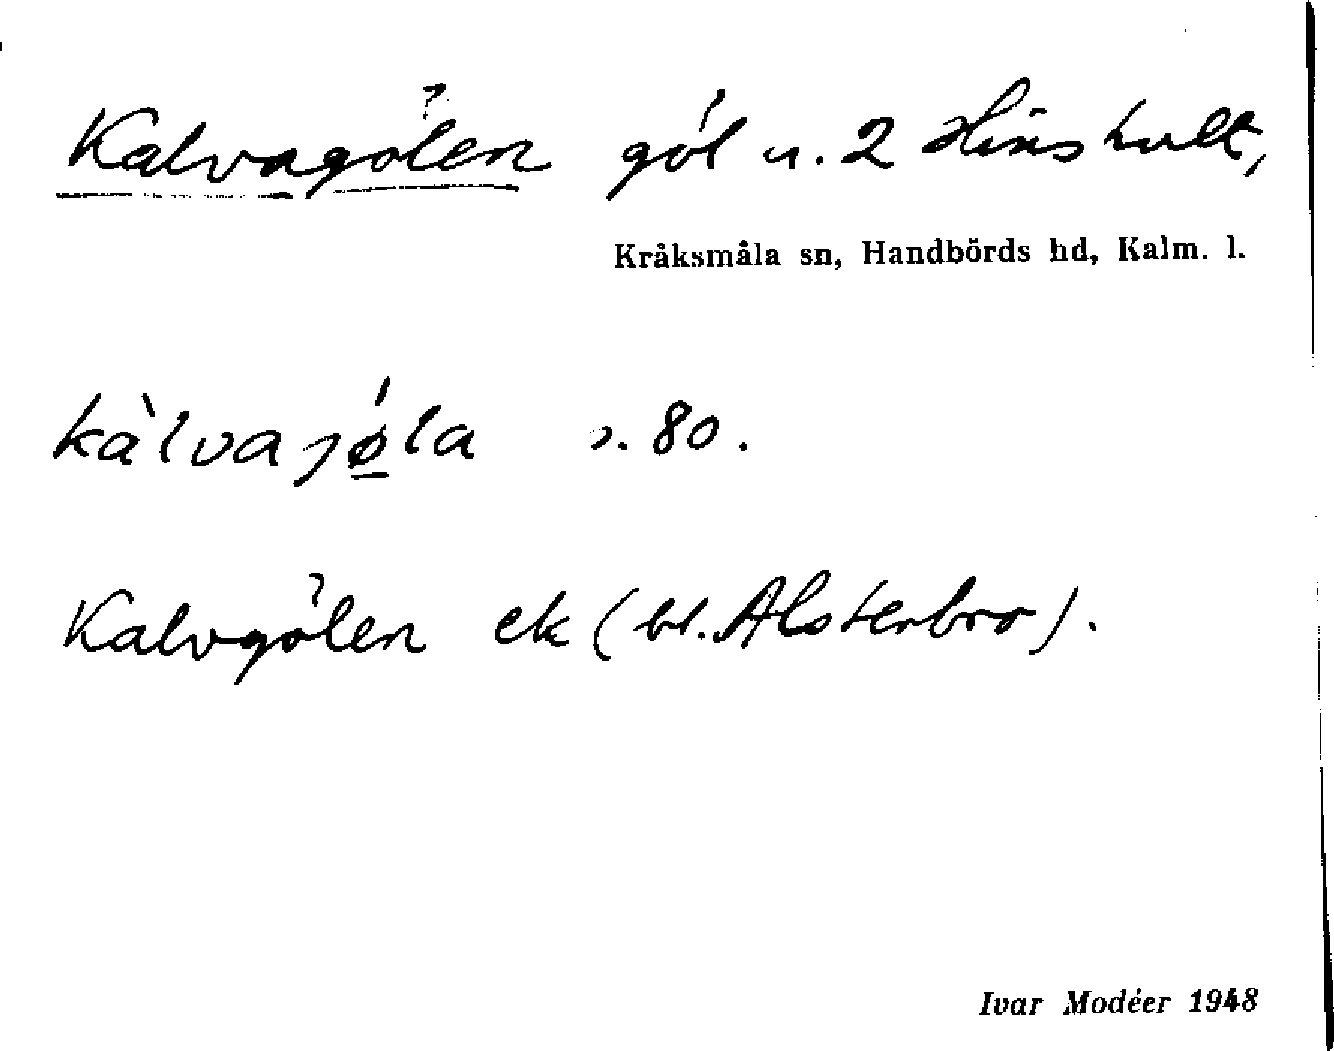 Kalvagölen göl u. 2 Hinshult,
Kråksmåla sn, Handbörds hd, Kalm. l.
kàlvajǿ̲la s. 80.
Kalvgölen ek (bl. Alsterbro).
Ivar Modéer 1948